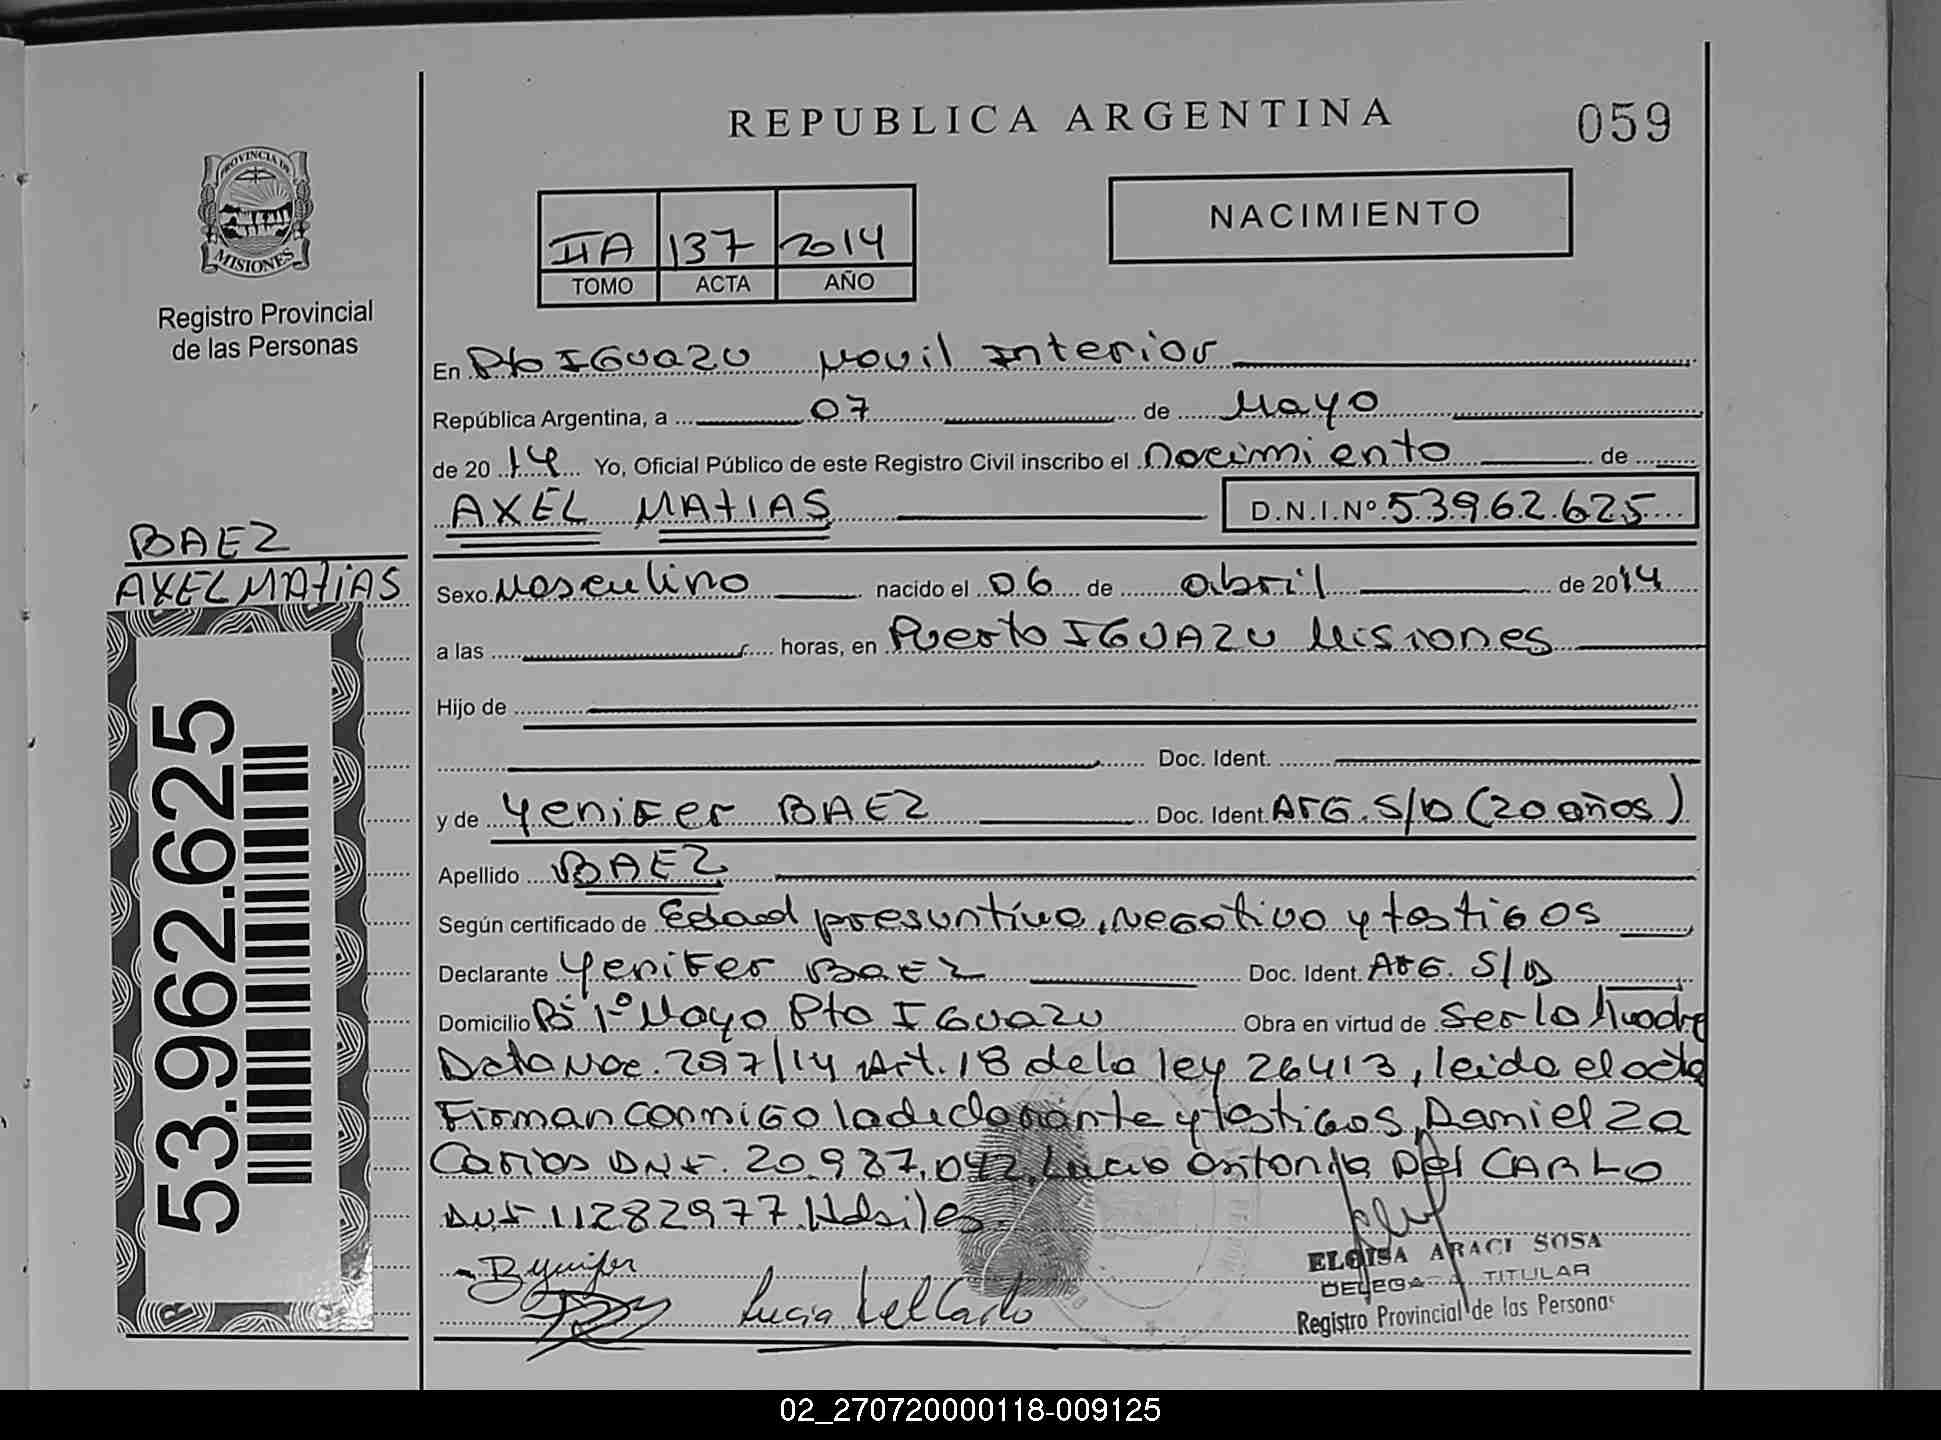 REPUBLICA ARGENTINA
059
PROVINCIA DE
MISIONES
Registro Provincial
de las Personas
IIA 137 2014
TOMO ACTA AÑO
NACIMIENTO
En Pto IGuazu Movil Interior
República Argentina, a 07 de Mayo
de 2014 Yo, Oficial Público de este Registro Civil inscribo el Nacimiento de
AXEL MATIAS D.N.I.Nº 53962625
BAEZ
AXEL MATIAS
53.962.625
Sexo Masculino nacido el 06 de abril de 2014
a las horas, en Puerto IGUAZU Misiones
Hijo de
Doc. Ident.
y de Yenifer BAEZ Doc. Ident. Arg. S/D (20 años)
Apellido BAEZ
Según certificado de Edad presuntiva, negativo y testigos
Declarante Yenifer BAEZ Doc. Ident. Arg. S/D
Domicilio Bº 1º Mayo Pto IGuazu Obra en virtud de Ser la Madre
Data Nac. 297/14 Art. 18 de la ley 26413, leida el acta
Firman conmigo la declarante y testigos, Daniel Za
Carias DNI. 20.937.042, Lucia Antonia Del CARLO
DNI 11282977
Lucia del Carlo
ELOISA ARACI SOSA
DELEGADA TITULAR
Registro Provincial de las Personas
02_270720000118-009125